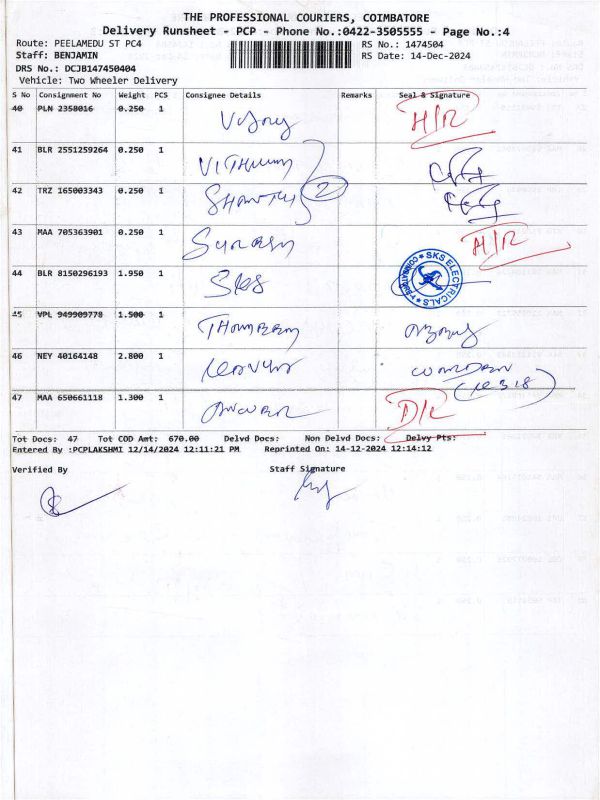 THE PROFESSIONAL COURIERS, COIMBATORE
Delivery Runsheet - PCP - Phone No.:0422-3505555 - Page No.:4
Route: PEELAMEDU ST PC4 RS No.: 1474504
Staff: BENJAMIN RS Date: 14-Dec-2024
DRS No.: DCJB147450404
Vehicle: Two Wheeler Delivery
S No Consignment No Weight PCS Consignee Details Remarks Seal & Signature
40 PLN 2358016 0.250 1 H/R
41 BLR 2551259264 0.250 1
42 TRZ 165003343 0.250 1 2
43 MAA 705363901 0.250 1 H/R
44 BLR 8150296193 1.950 1 SKS SKS ELECTRICALS
45 VPL 949909778 1.500 1
46 NEY 40164148 2.800 1
47 MAA 650661118 1.300 1 D/R
Tot Docs: 47 Tot COD Amt: 670.00 Delvd Docs: Non Delvd Docs: Delvy Pts:
Entered By :PCPLAKSHMI 12/14/2024 12:11:21 PM Reprinted On: 14-12-2024 12:14:12
Verified By Staff Signature